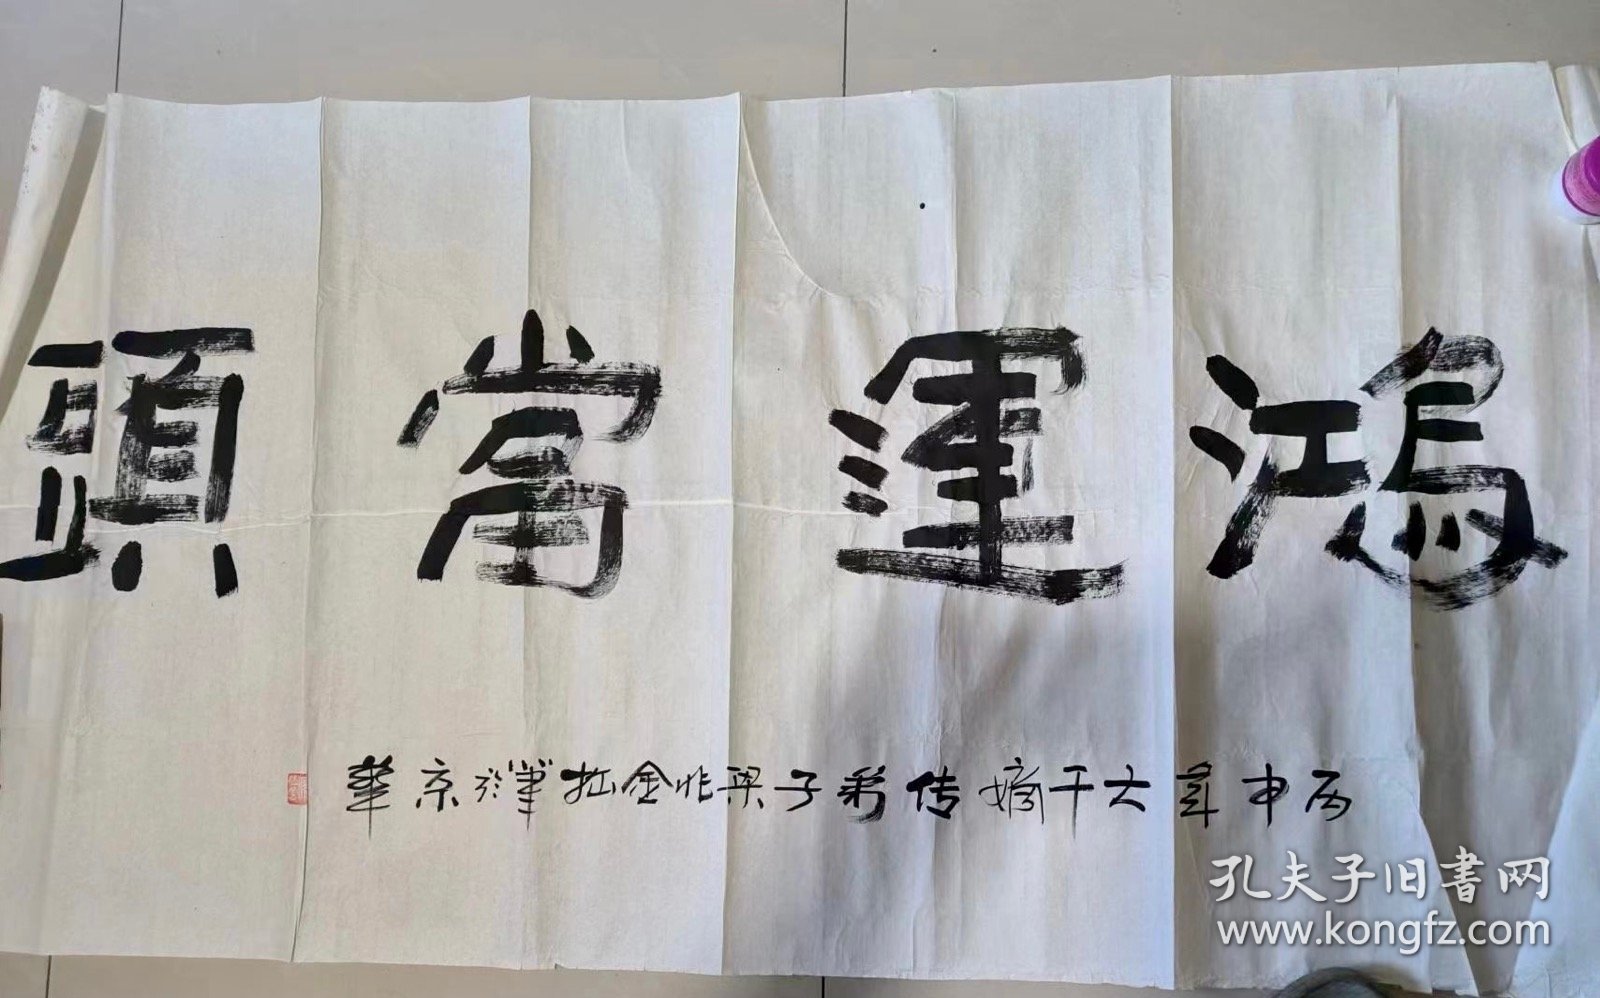 鴻運常頭
丙申年大千嫡传弟子梁兆金拙筆於京華
孔夫子旧書网
www.kongfz.com